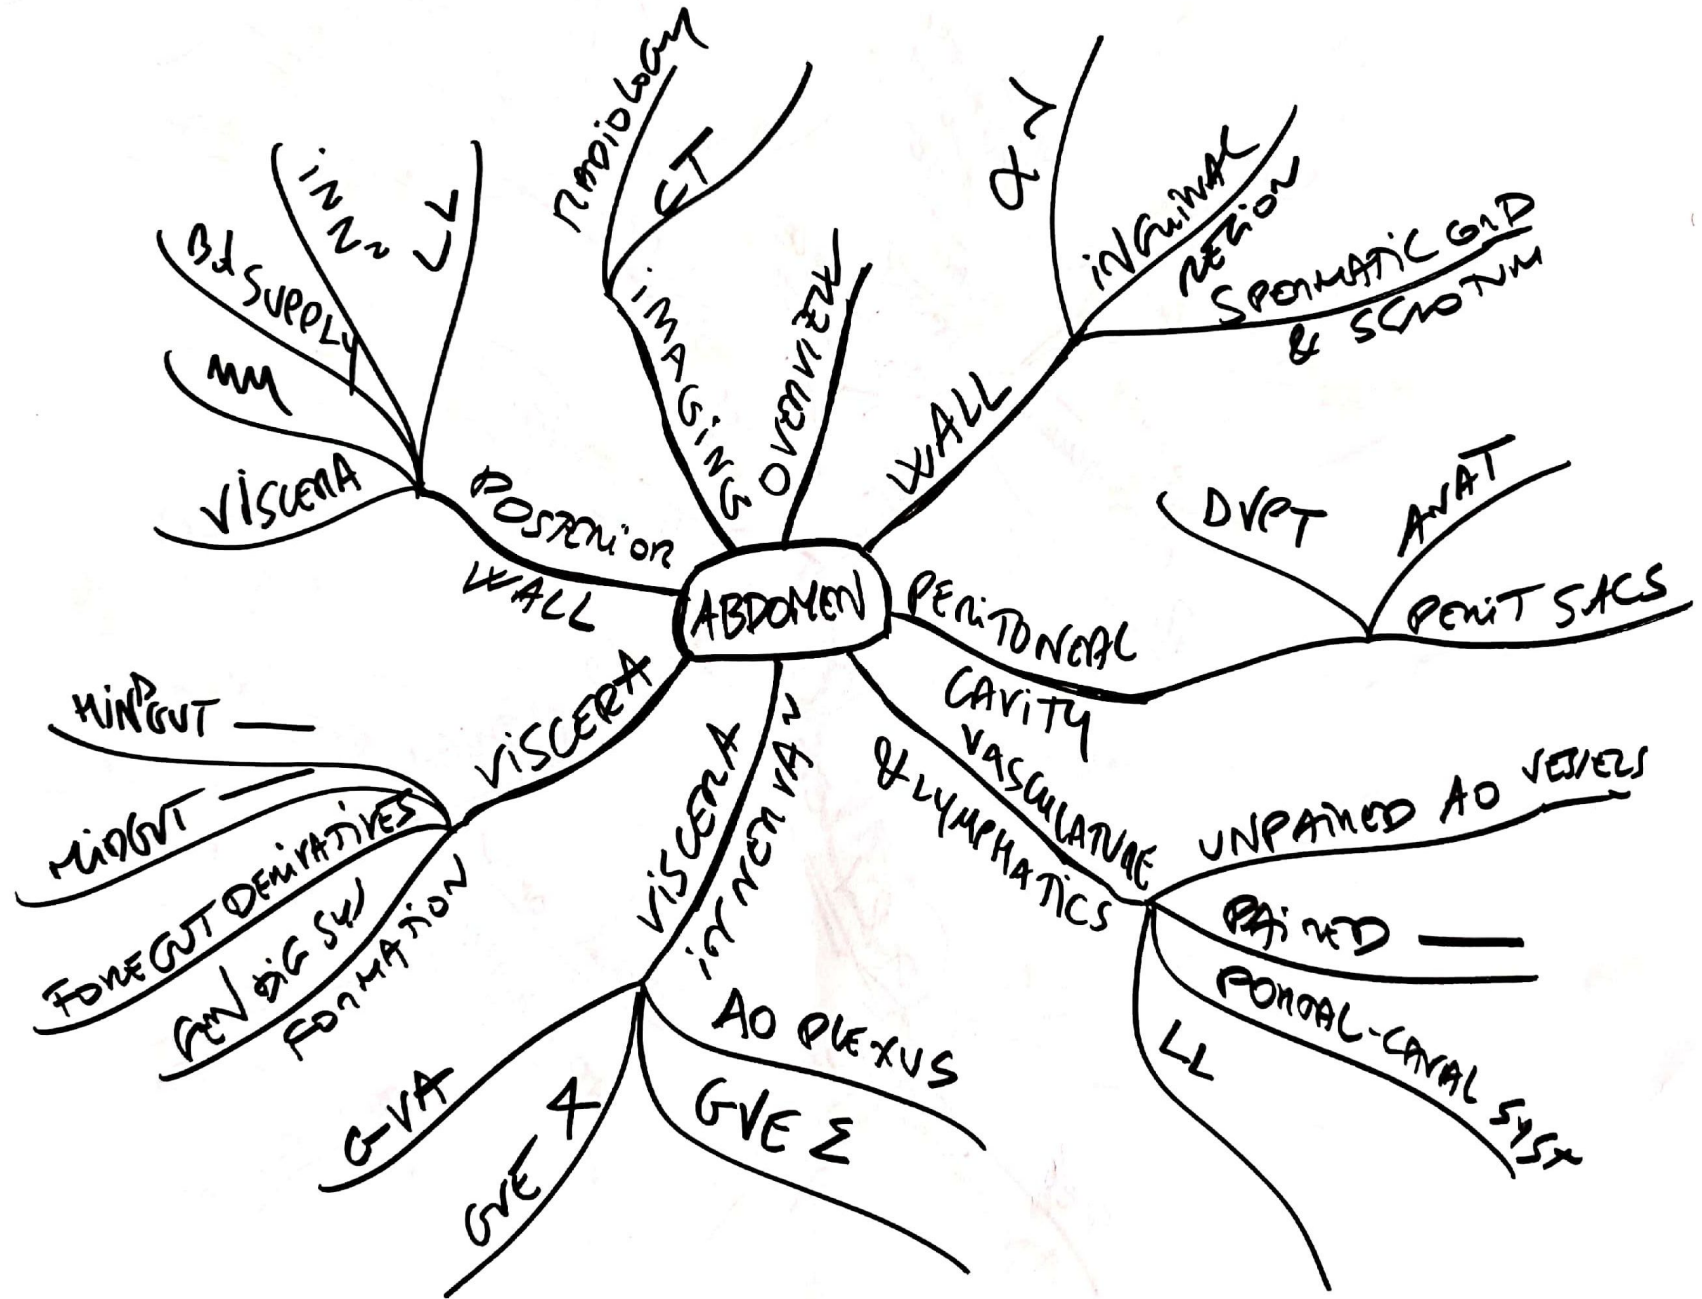 ABDOMEN
OVERVIEW
WALL
INGUINAL
REGION
SPERMATIC CORD
& SCROTUM
PERITONEAL
CAVITY
DVPT
ANAT
PERIT SACS
VASCULATURE
& LYMPHATICS
UNPAIRED AO VESSELS
PAIRED —
PORTAL-CAVAL SYST
LL
VISCERA
INNERVA~
AO PLEXUS
GVE Σ
GVE
GVA
VISCERA
HINDGUT —
MIDGUT —
FOREGUT DERIVATIVES
GEN DIG SYS
FORMATION
POSTERIOR
WALL
VISCERA
MM
BD SUPPLY
INN~
LL
IMAGING
RADIOLOGY
CT